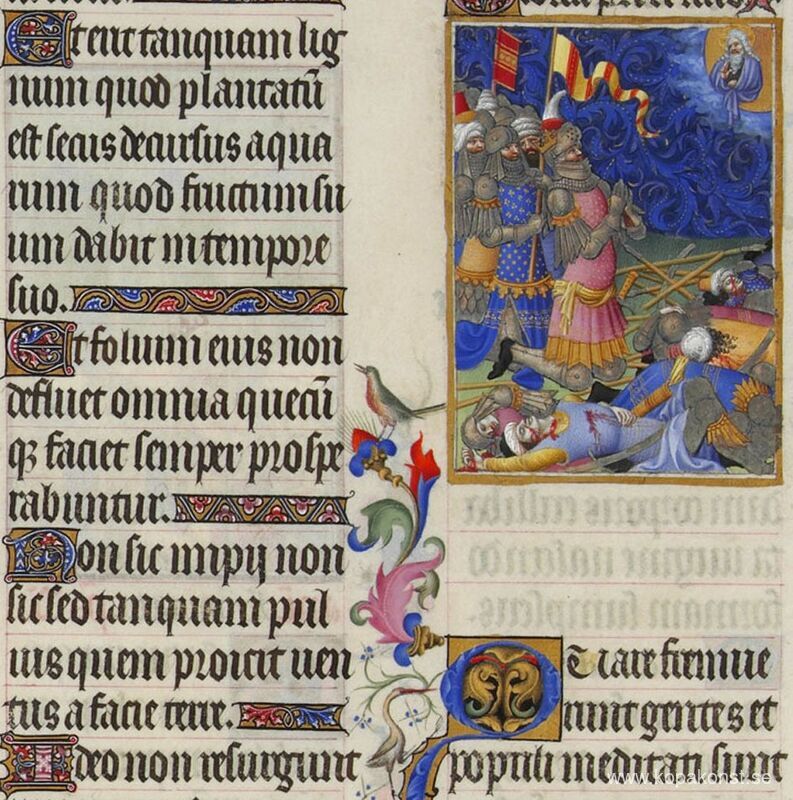 Et erit tanquam lig
num quod plantatū
est secus decursus aqua
rum quod fructum su
um dabit in tempore
suo.
Et folium eius non
defluet omnia quecū
q; faciet semper prospe
rabuntur.
Non sic impij non
sic sed tanquam pul
uis quem proicit uen
tus a facie terre.
Ideo non resurgunt
Quare fremue
runt gentes et
populi meditati sunt
www.kopakonst.se